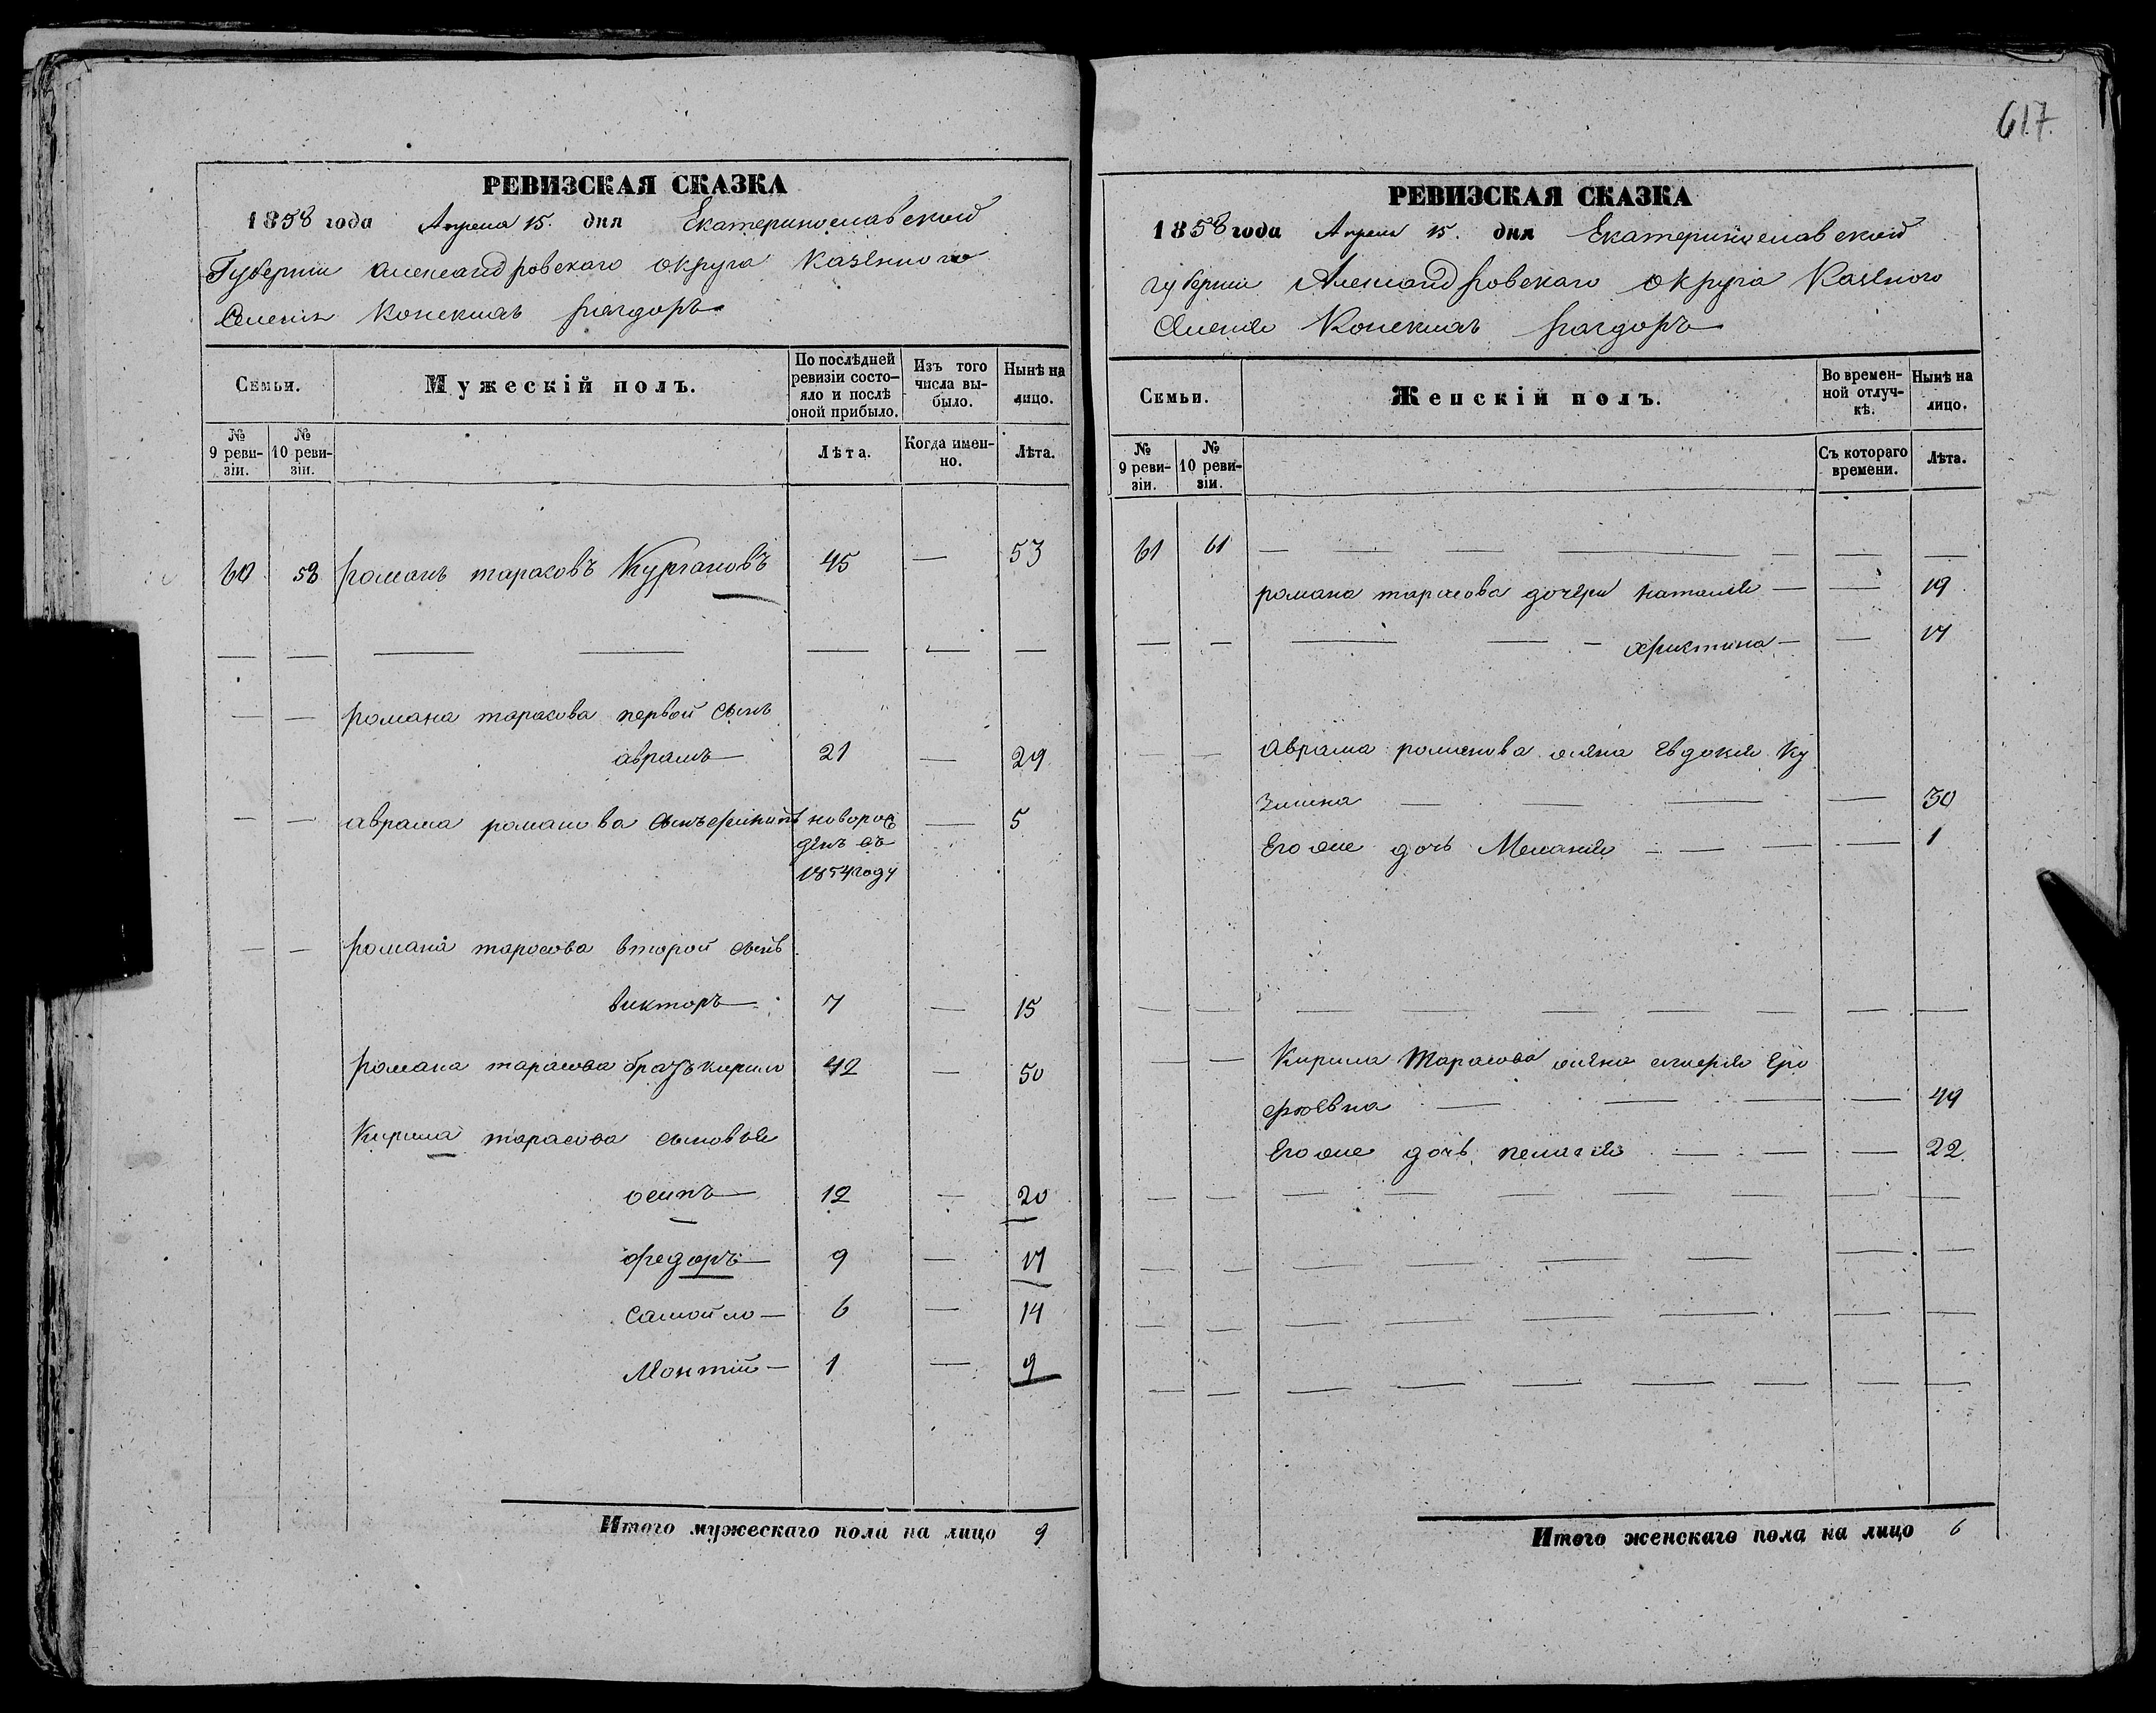 617.
РЕВИЗСКАЯ СКАЗКА
1858 года Апреля 15. дня Екатеринославской
Губернии александровскаго округа Казенного
Селения Конскихъ раздоръ
Семьи.
Мужескій полъ.
По послѣдней ревизіи состо-яло и послѣ оной прибыло.
Изъ того числа вы-было.
Нынѣ на лицо.
№ 9 реви-зіи.
№ 10 реви-зіи.
Лѣта.
Когда имен-но.
Лѣта.
60 58 романъ тарасовъ Кургановъ 45 — 53
романа тарасова первой сынъ
аврамъ — 21 — 29
аврама романова сынъ новорож 5
денъ въ
1854 году
романа тарасова второй сынъ
викторъ — 7 — 15
романа тарасова братъ кирило 42 — 50
Кирила тарасова сыновья
осипъ — 12 — 20
федоръ — 9 — 17
самойло — 6 — 14
— 1 — 9
Итого мужескаго пола на лицо 9
РЕВИЗСКАЯ СКАЗКА
1858 года Апреля 15. дня Екатеринославской
губернии Александровскаго округа Казеного
Селения Конскихъ раздоръ
Семьи.
Женскій полъ.
Во времен-ной отлуч-кѣ.
Нынѣ на лицо.
№ 9 реви-зіи.
№ 10 реви-зіи.
Съ котораго времени.
Лѣта.
61 61
романа тарасова дочери наталия — — 19
христина — — 17
Аврама романова жена Евдокия Ку
змина — 30
Его же дочь Мелания — 1
Кирила Тарасова жена Еро
феевна — 49
Его же дочь пелагия — 22
Итого женскаго пола на лицо 6